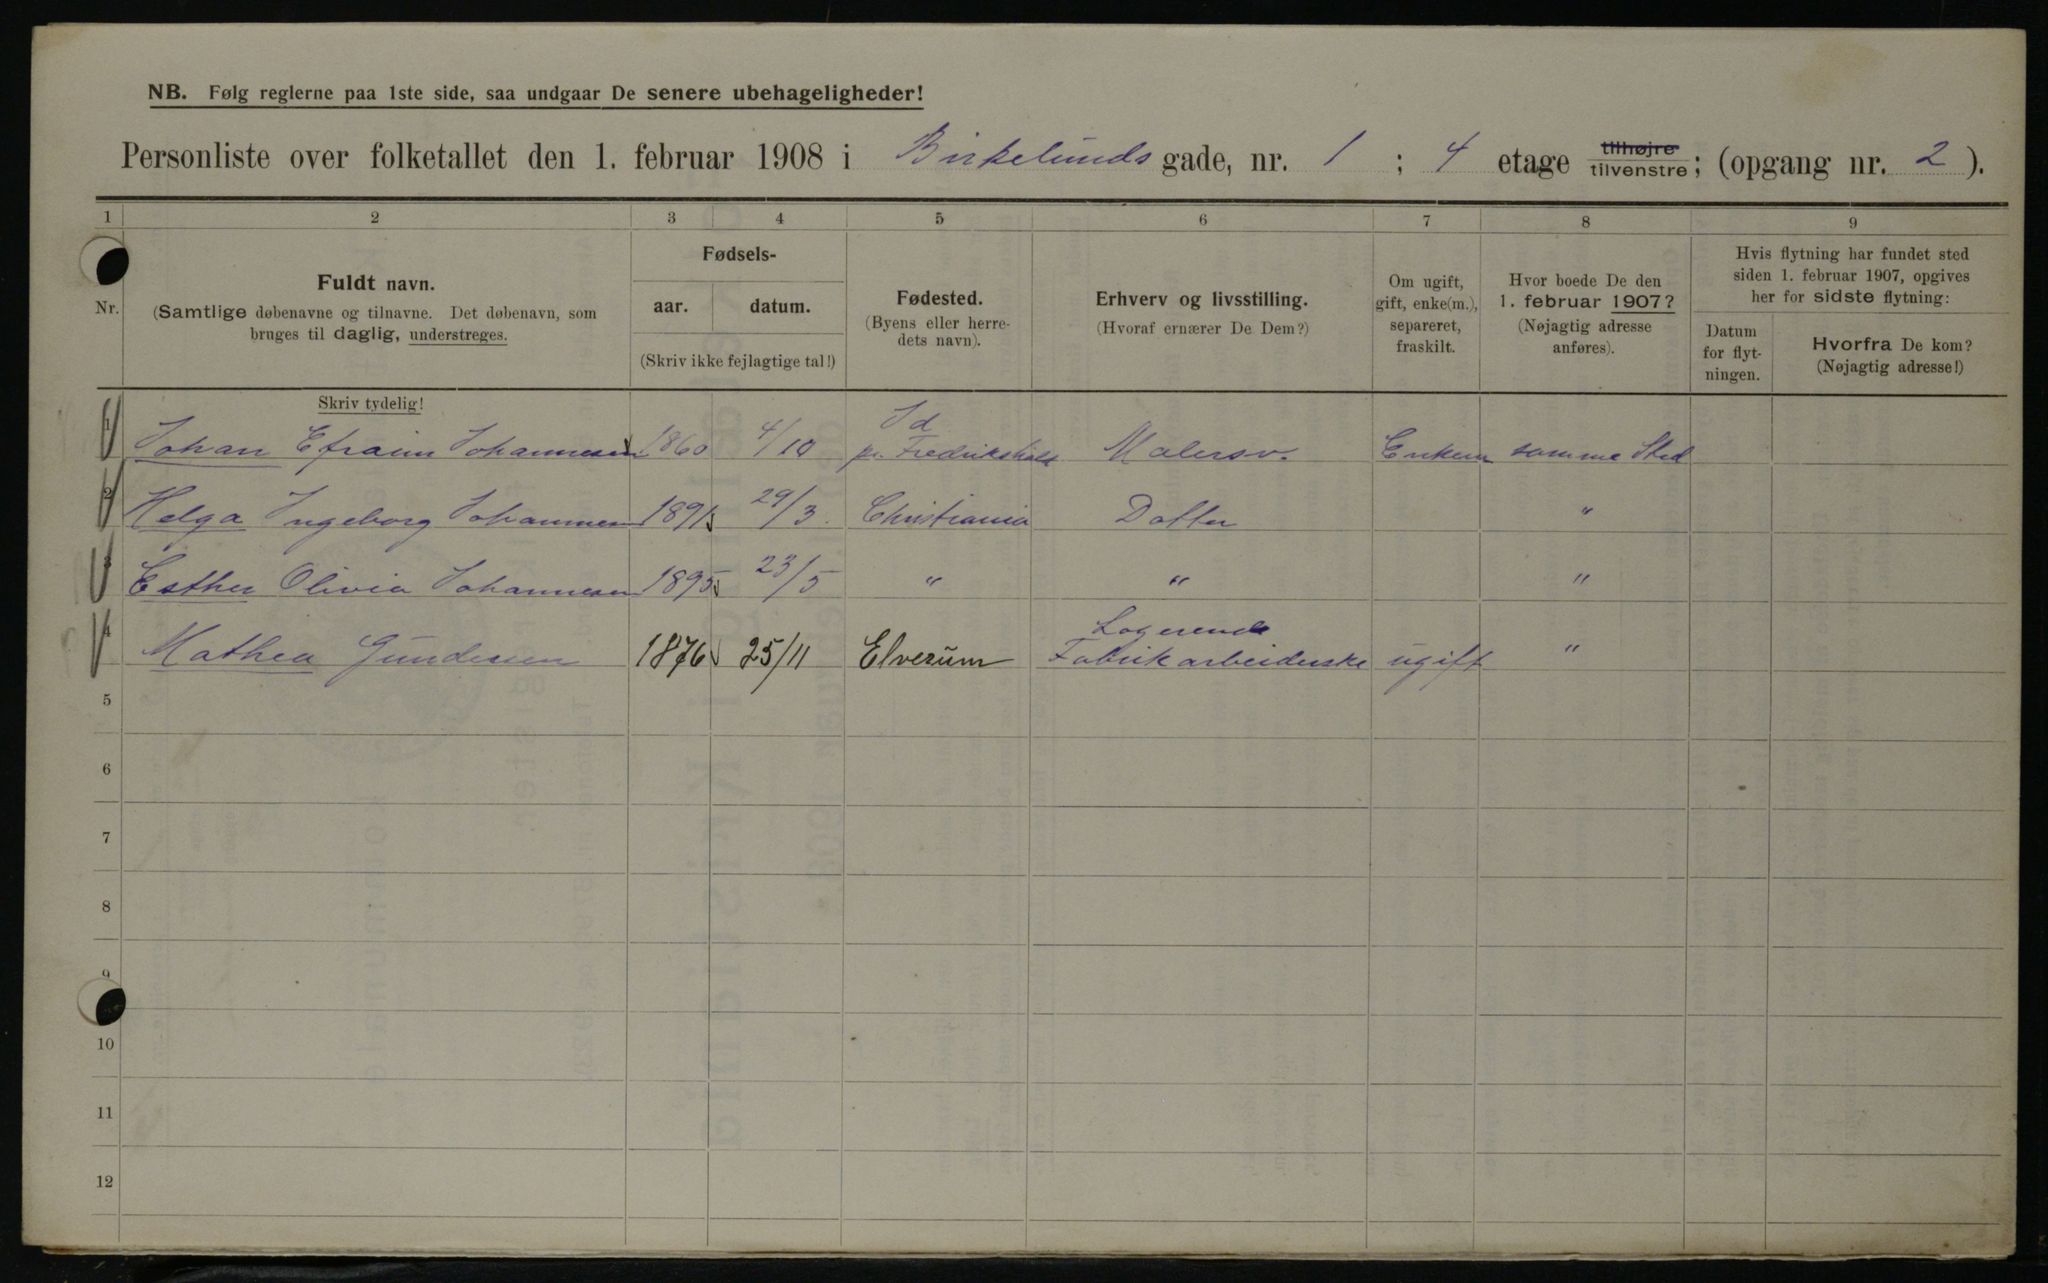 NB. Følg reglerne paa 1ste side, saa undgaar De senere ubehageligheder!
Personliste over folketallet den 1. februar 1908 i Birkelunds gade, nr. 1 ; 4 etage tilhøjre tilvenstre ; (opgang nr. 2 ).
1 2 3 4 5 6 7 8 9
Nr.
Fuldt navn.
(Samtlige døbenavne og tilnavne. Det døbenavn, som
bruges til daglig, understreges.
Skriv tydelig!
Fødsels-
aar. datum.
(Skriv ikke fejlagtige tal!)
Fødested.
(Byens eller herre-
dets navn).
Erhverv og livsstilling.
(Hvoraf ernærer De Dem?)
Om ugift,
gift, enke(m.),
separeret,
fraskilt.
Hvor boede De den
1. februar 1907?
(Nøjagtig adresse
anføres).
Hvis flytning har fundet sted
siden 1. februar 1907, opgives
her for sidste flytning:
Datum
for flyt-
ningen.
Hvorfra De kom?
(Nøjagtig adresse!)
Id
1 Johan Efraim Johannesen 1860 4/10 pr. Fredrikshald Malersv. Enkem samme Sted
2 Helga Ingeborg Johannesen 1891 29/3 Christiania Datter "
3 Esther Olivia Johannesen 1895 23/5 " " "
Logerende
4 Mathea Gundersen 1876 25/11 Elverum Fabrikarbeiderske ugift "
5
6
7
8
9
10
11
12